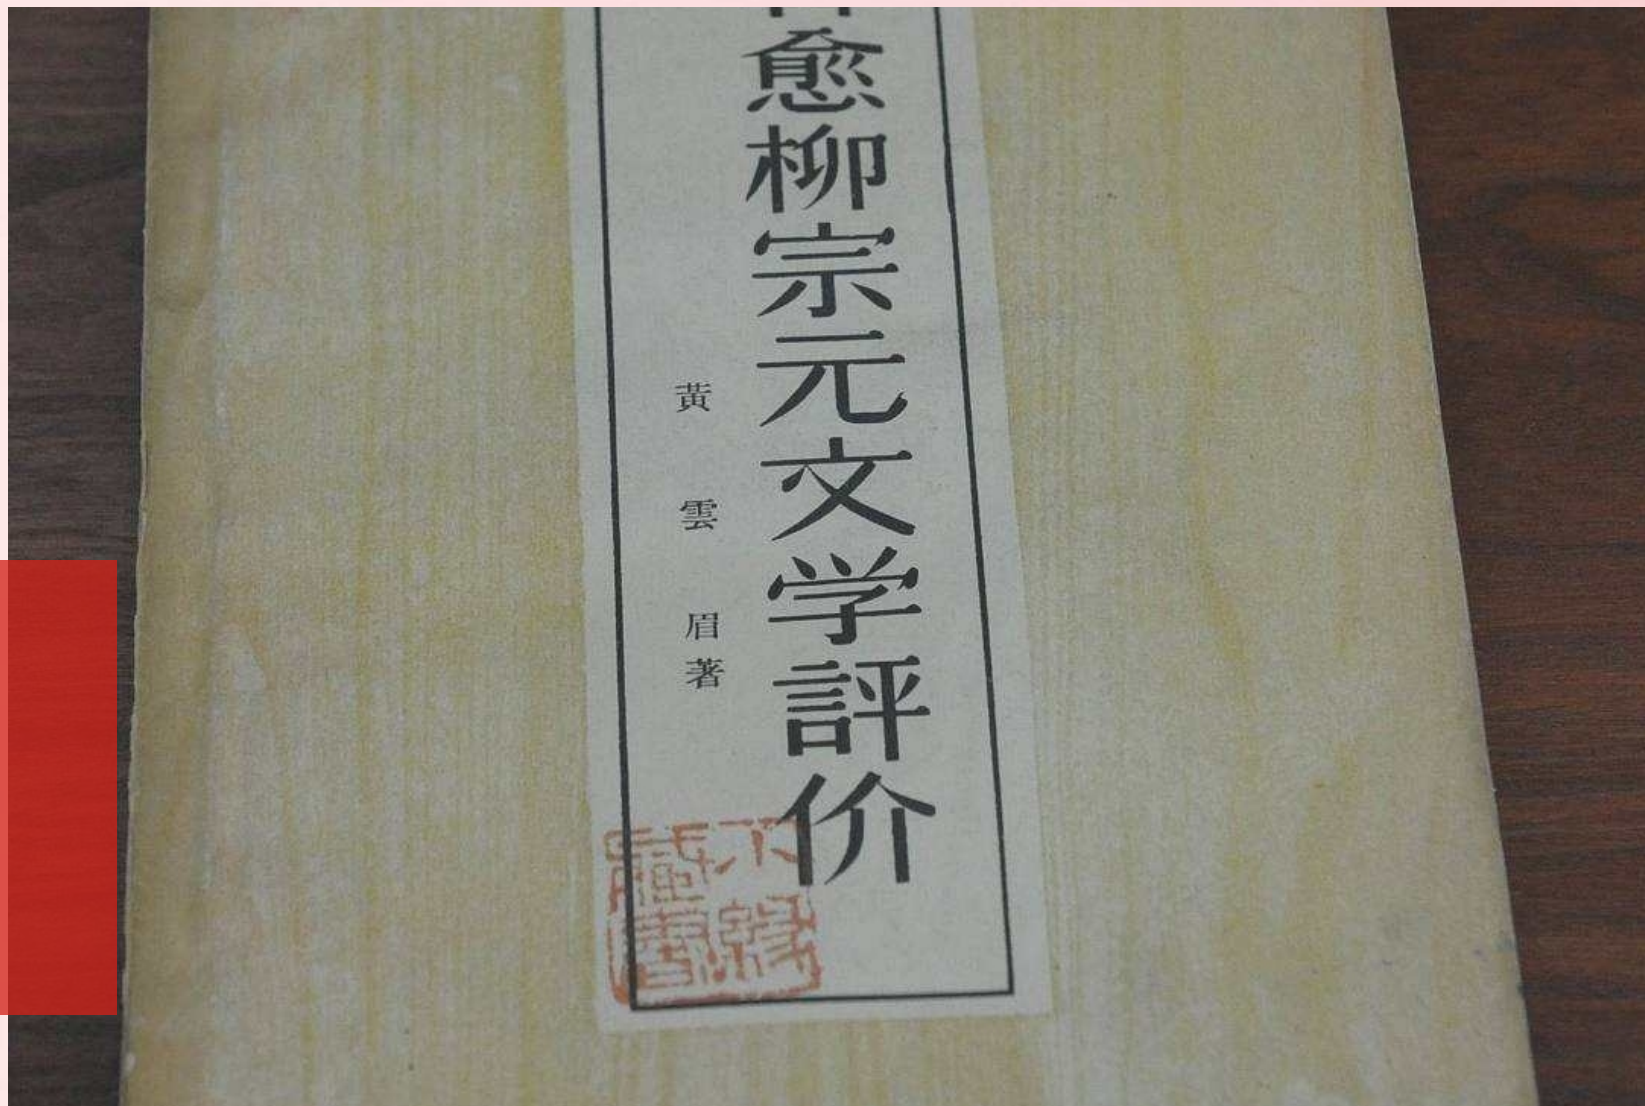 愈柳宗元文学評价
黄雲眉著